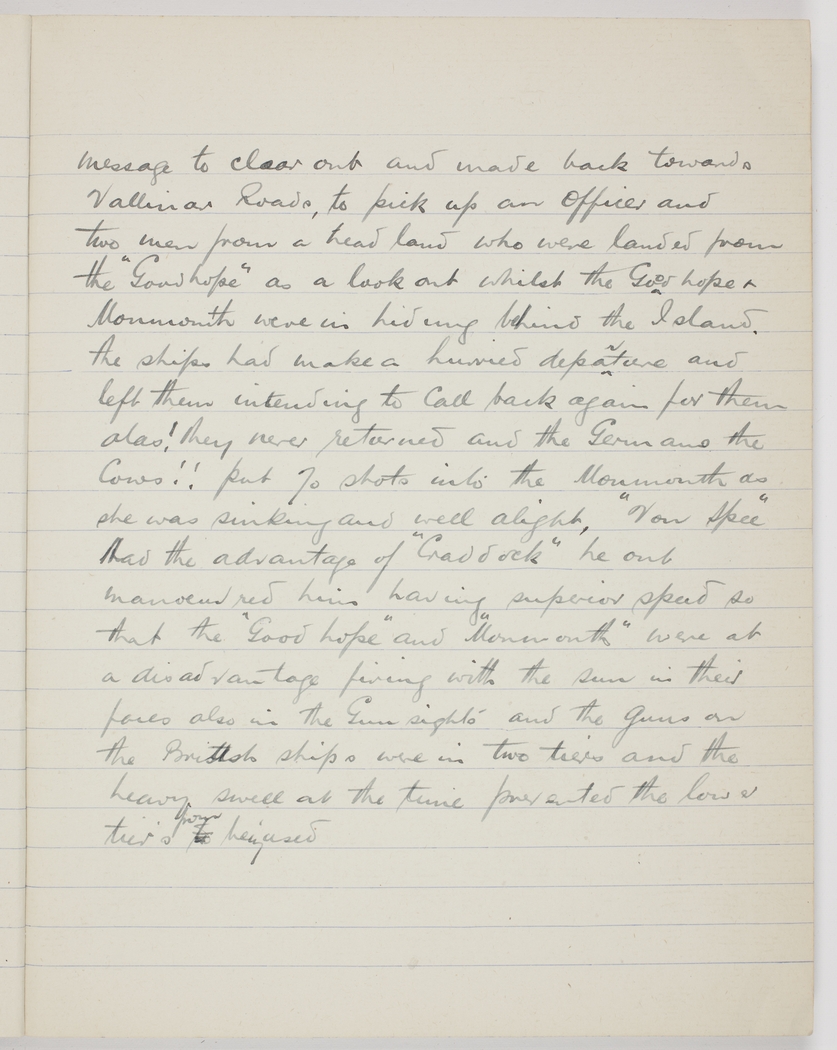 message to clear out and made back towards
Vallinar Roads, to pick up an Officer and
two men from a head land who were landed from
the "Good hope" as a look out whilst the Good hope &
Monmouth were in hiding behind the Island.
the ships had make a hurried depature and
left them intending to Call back again for them
alas! they never returned and the Germans the
Cows!! put 70 shots into the Monmouth as
she was sinking and well alight, "Von Spee"
had the advantage of "Craddock" he out
manoeuvred him having superior speed so
that the "Good hope" and "Monmouth" were at
a disadvantage firing with the sun in their
faces also in the Gun sights and the guns on
the British ships were in two tiers and the
heavy swell at the time prevented the lower
tier's from being used